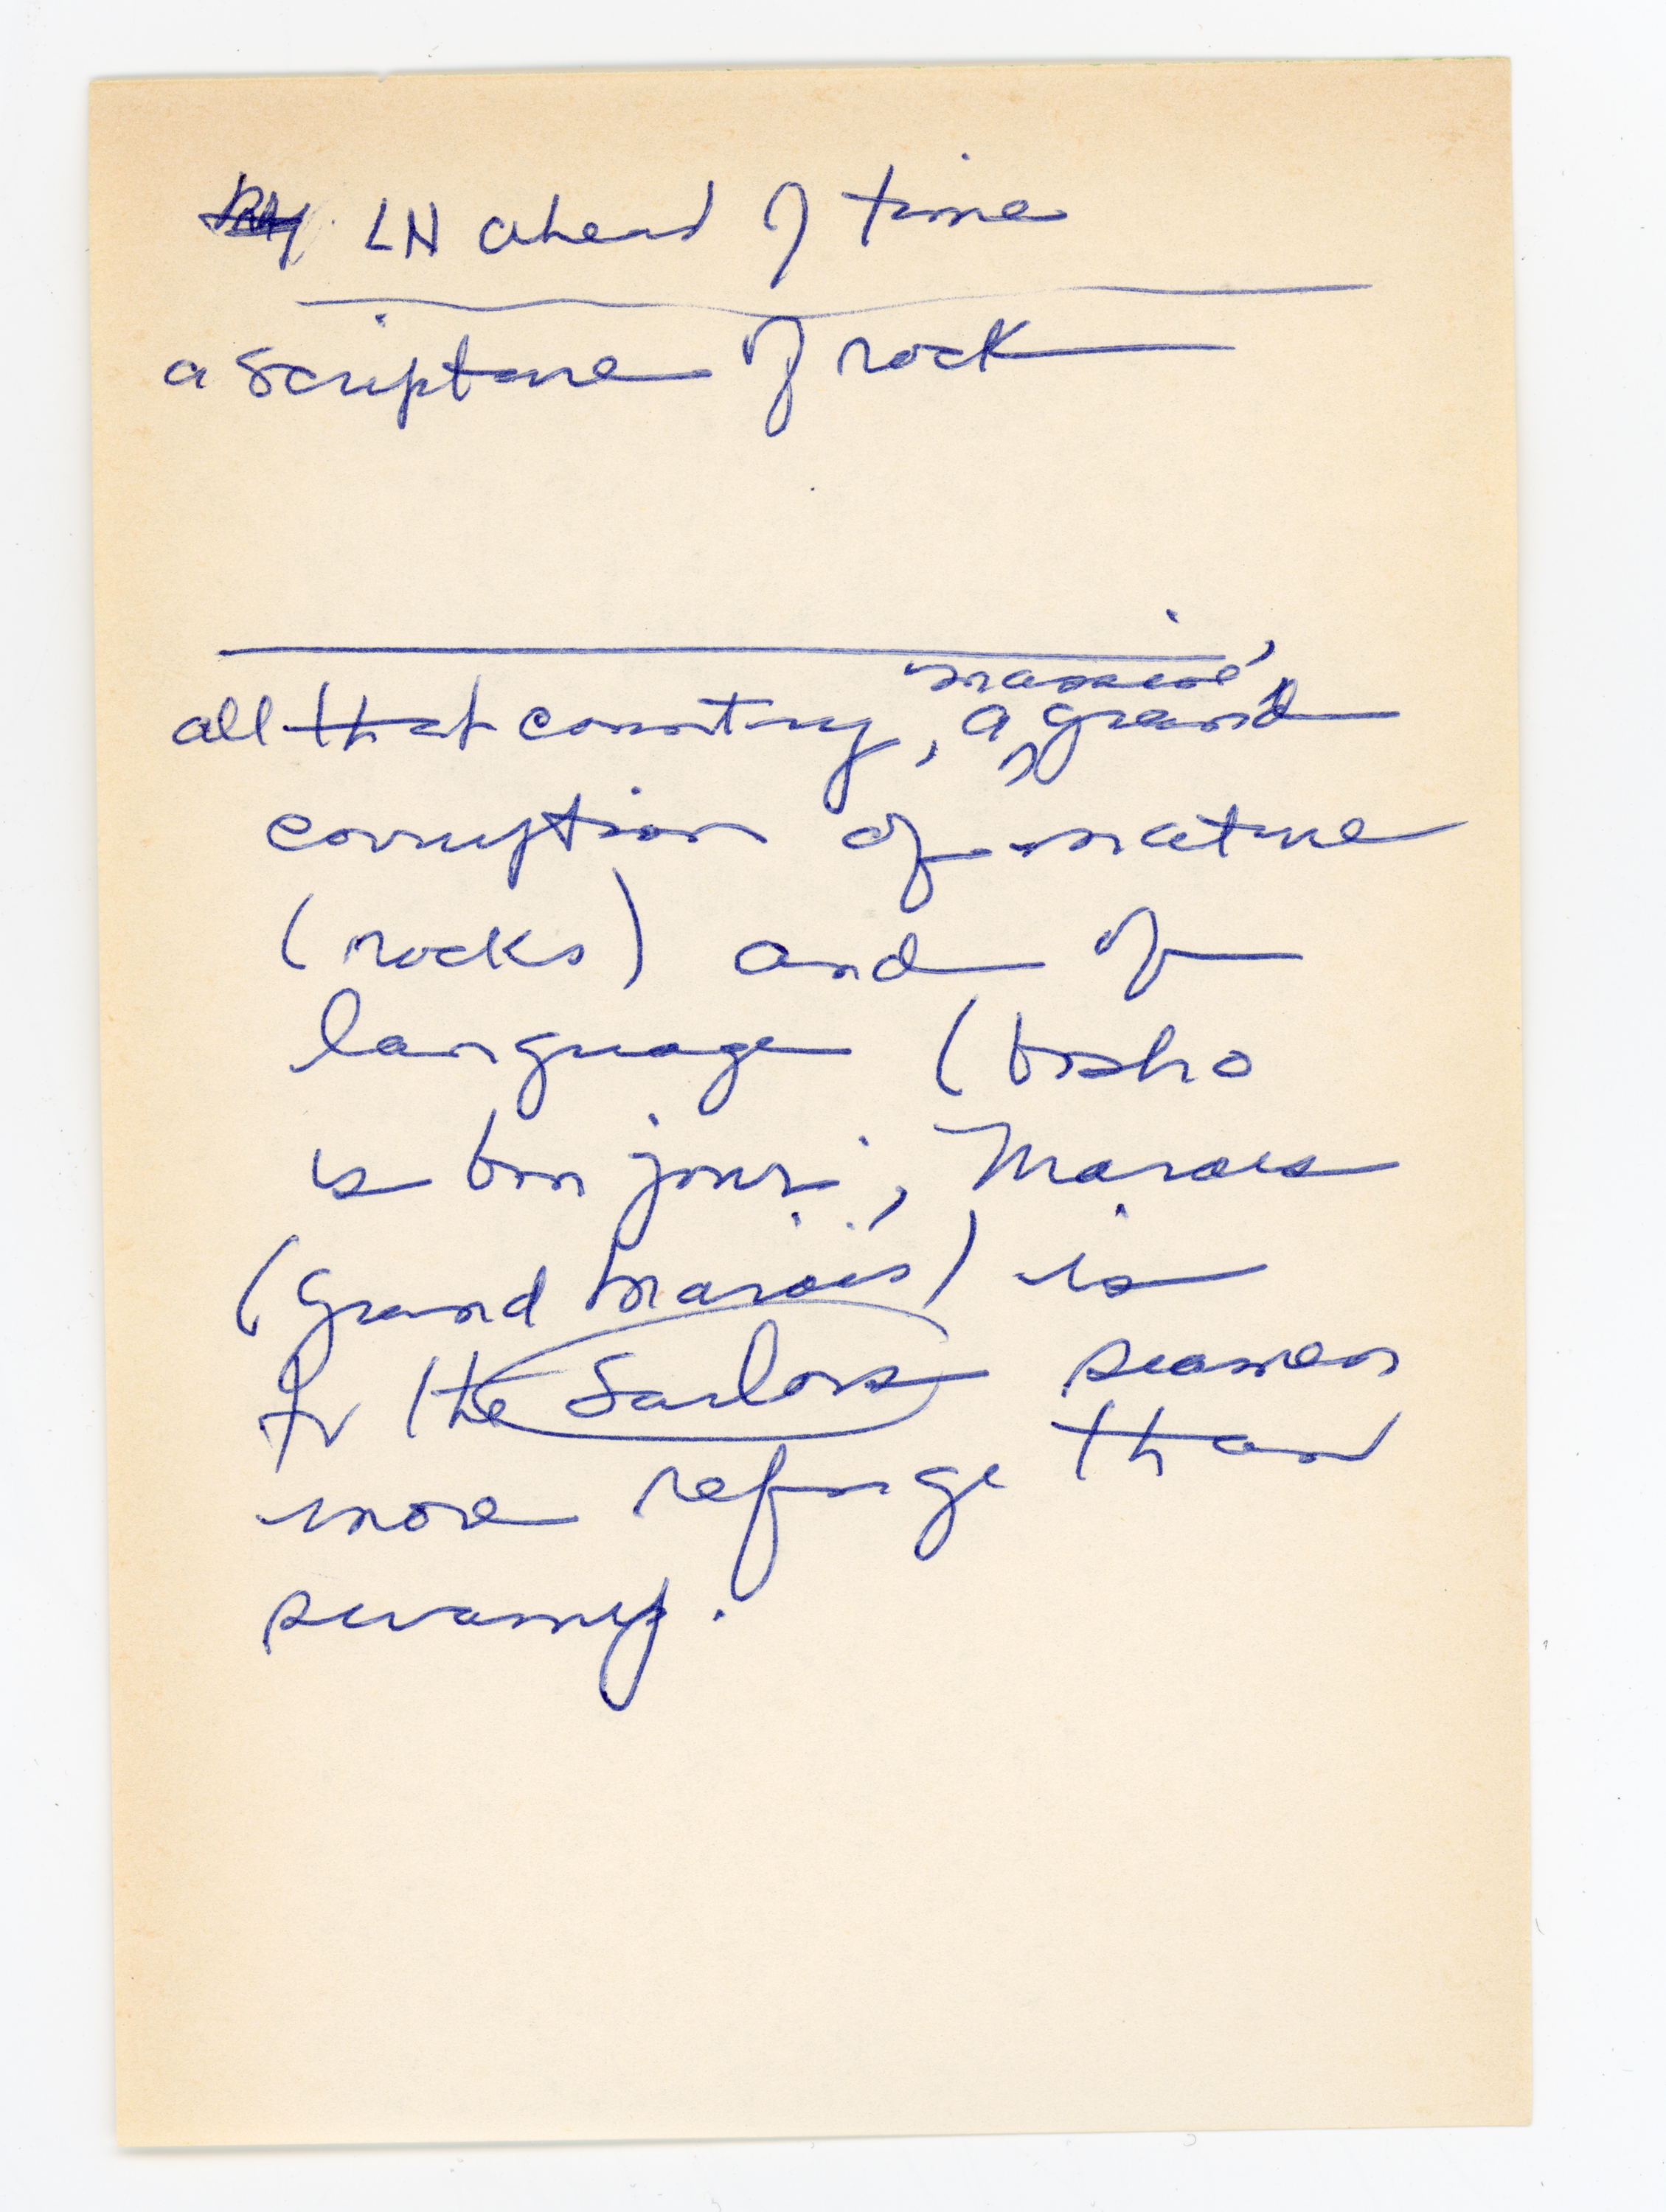 LN ahead of time
a scripture of rock
massive,
all that country, a grand
corruption of nature
(rocks) and of
language (bosho
is bon jour, Marais
(Grand Marais) is
for the Sailors seamen
more refuge than
swamp.